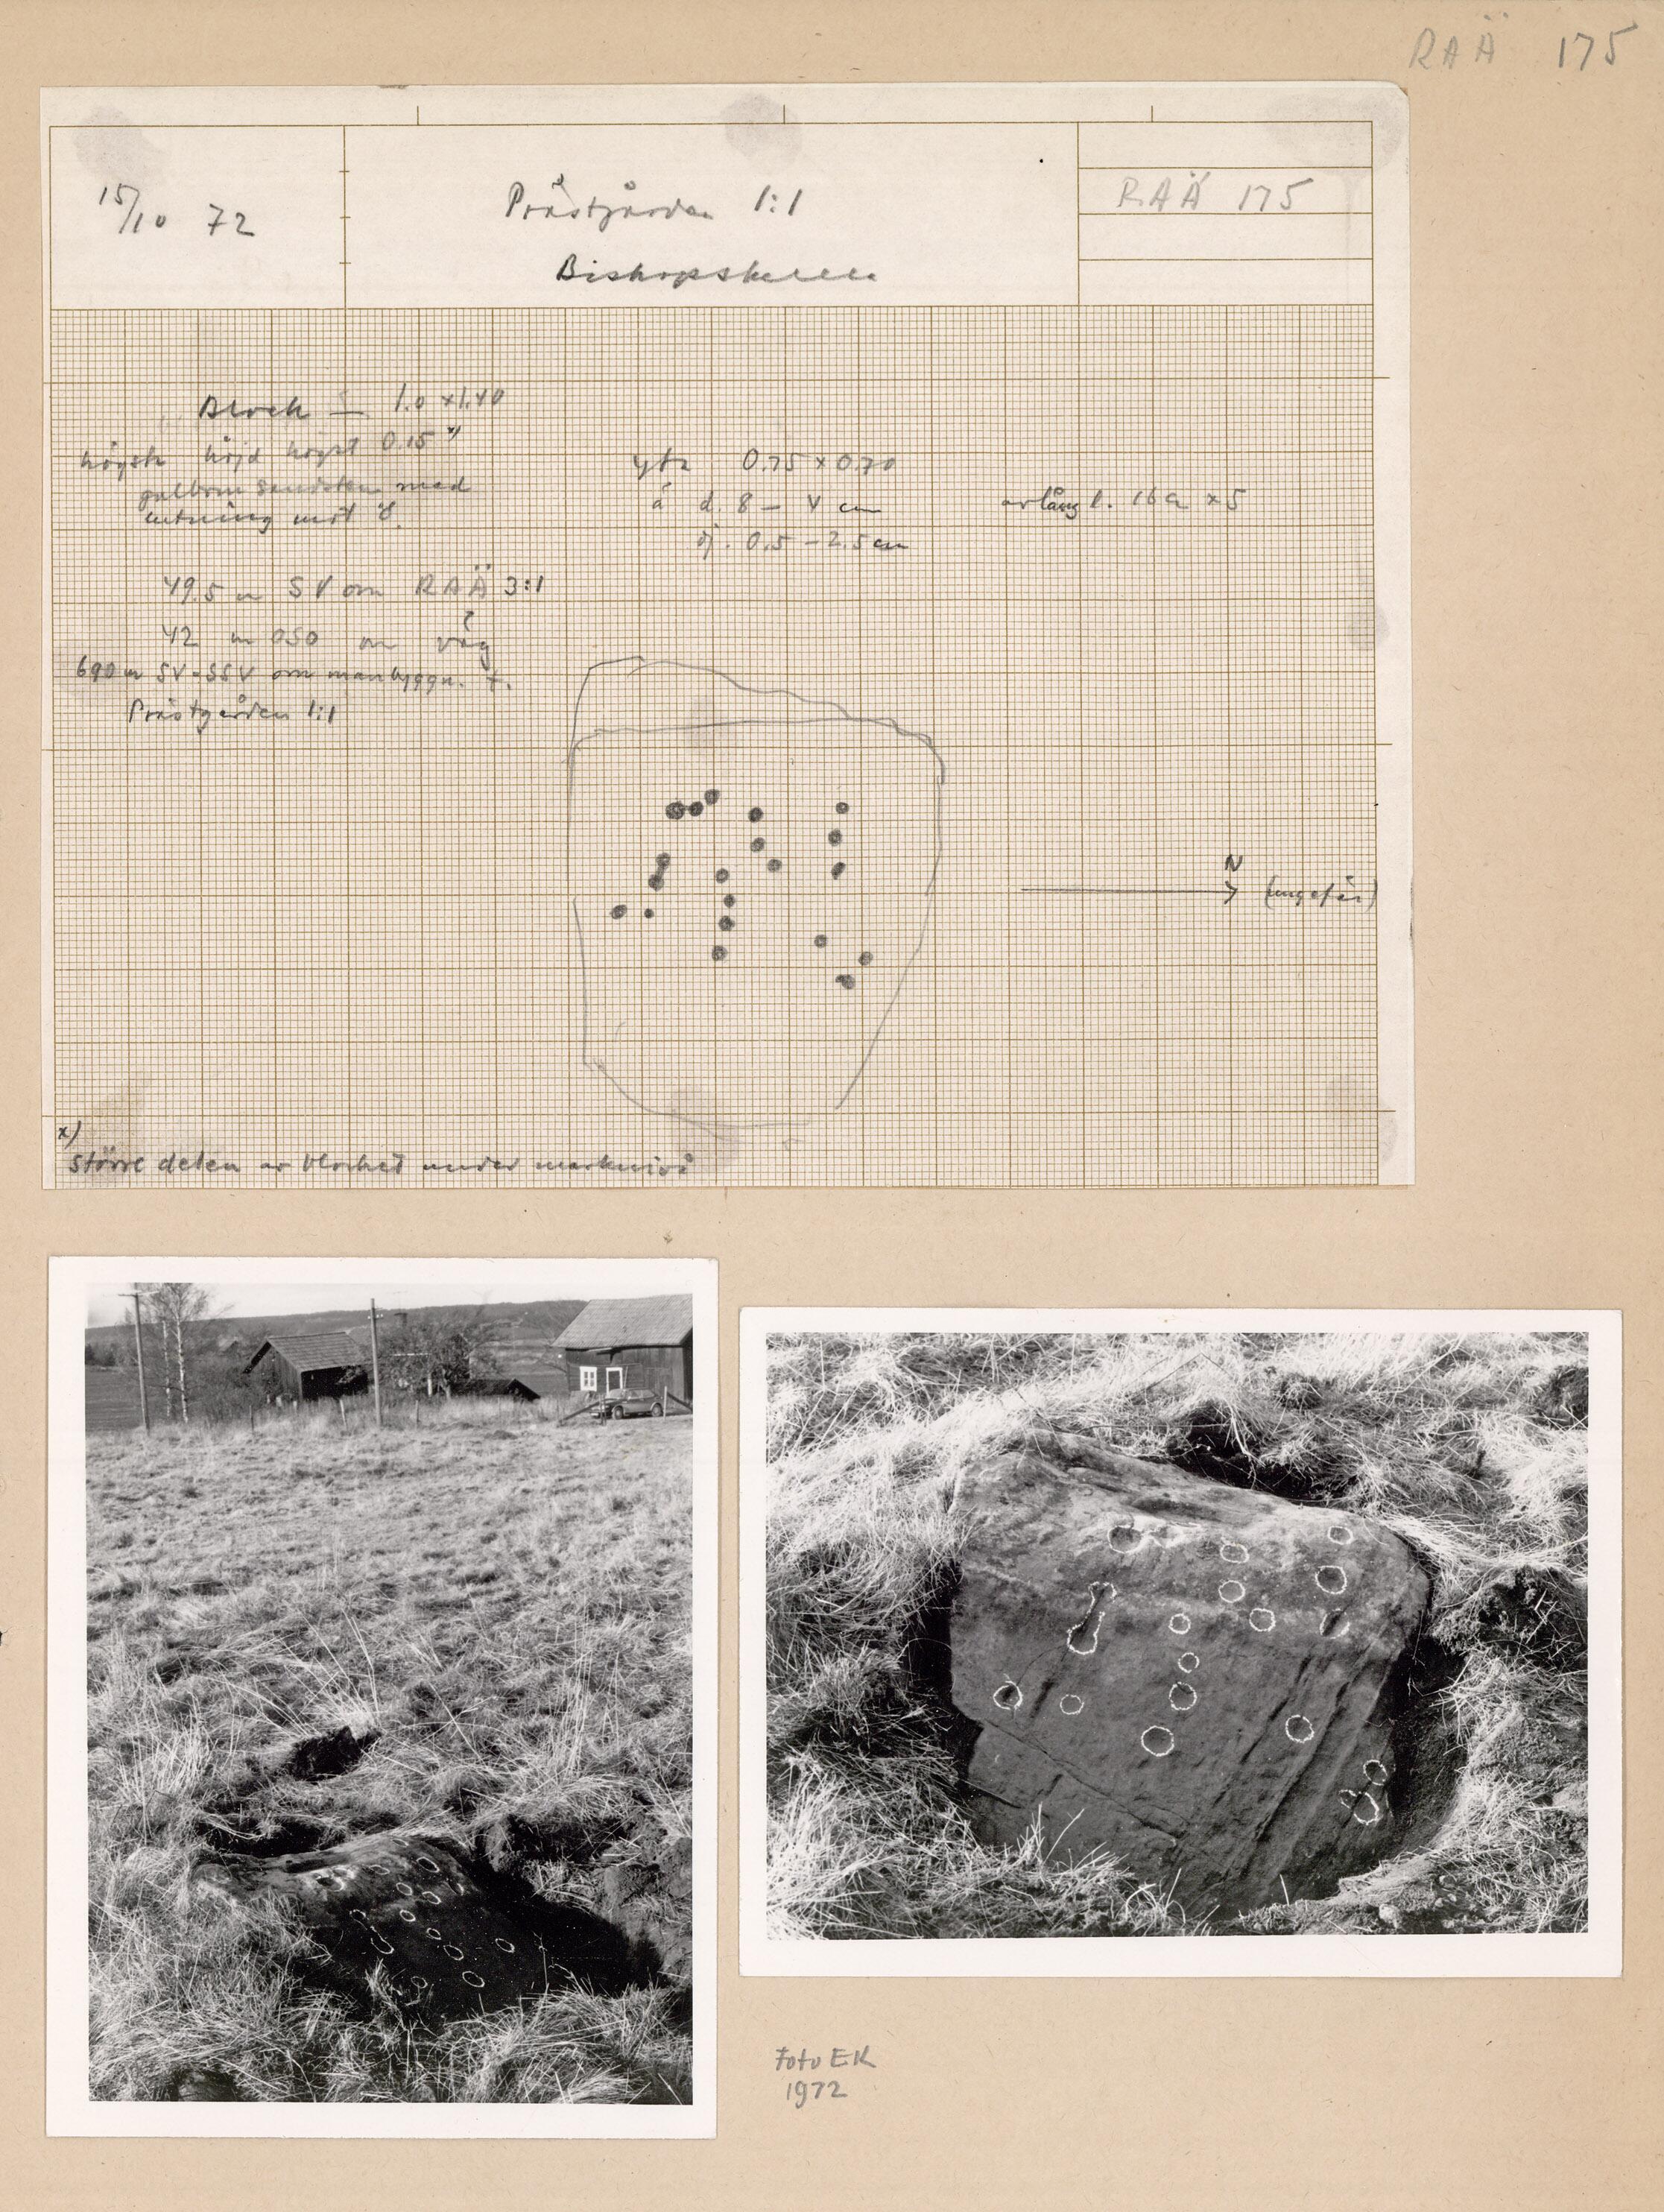 RAÄ 175
15/10 72
Prästgården 1:1
Bishopskulla
RAÄ 175
Block 1.0 x 1.40
högsta höjd högst 0.15 x)
sandsten med
lutning mot
yta 0.75 x 0.70
d. 8 - 4 cm
dj. 0.5 - 2.5 cm
avlång l. 16 x 5
49.5 m SV om RAÄ 3:1
42 m OSO om väg
690 m SV-SSV om manbyggn. t.
Prästgården 1:1
N
(ungefär)
x)
Större delen av blocket under marknivå
Foto EK
1972